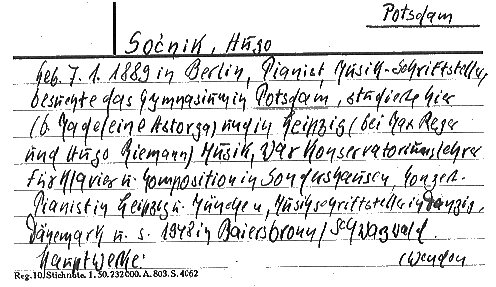 Potsdam
Sočnik, Hugo
Geb. 7. 1. 1889 in Berlin, Pianist, Musik-Schriftsteller,
besuchte das Gymnasium in Potsdam, studierte hier
(b. Astorga) und in Leipzig (bei Max Reger
und Hugo Riemann) Musik, War Konservatoriumslehrer
für Klavier u. Composition in Sondershausen, Konzert-
Pianist in Leipzig u. München, Musikschriftsteller in Danzig,
Dänemark u. s. 1948 in Baiersbronn/Schwarzwald.
Hauptwerke: (wenden
Reg. 10. Stichnote. 1. 50. 232000. A. 803. S. 4062